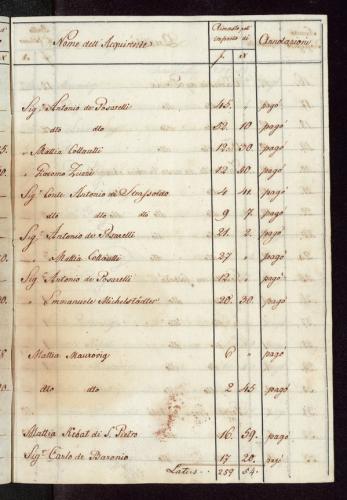 Nome dell'Acquirente Rimasto per importo di Annotazioni
f. x
Sigr. Antonio de Posarelli 45. " pagò
dto dto 52. 10 pagò
" Mattia Collautti 12. 30. pagò
" Giacomo Zucni 12 40. pagò
Sigr. Conte Antonio di Strassoldo 4 4. pagò
dto dto di 9 7. pagò
Sigr. Antonio de Posarelli 21. 2. pagò
" Mattia Collautti 27 " pagò
Sigr. Antonio de Posarelli 12. " pagò
" Emmanuele Michelstädter 20. 30. pagò
Mattia Maurovig 6 " pagò
dto dto 2 45 pagò
Mattia Rebat di S. Pietro 16. 59. pagò
Sigr. Carlo de Baronio 17 20. pagò
Latus 259 54.